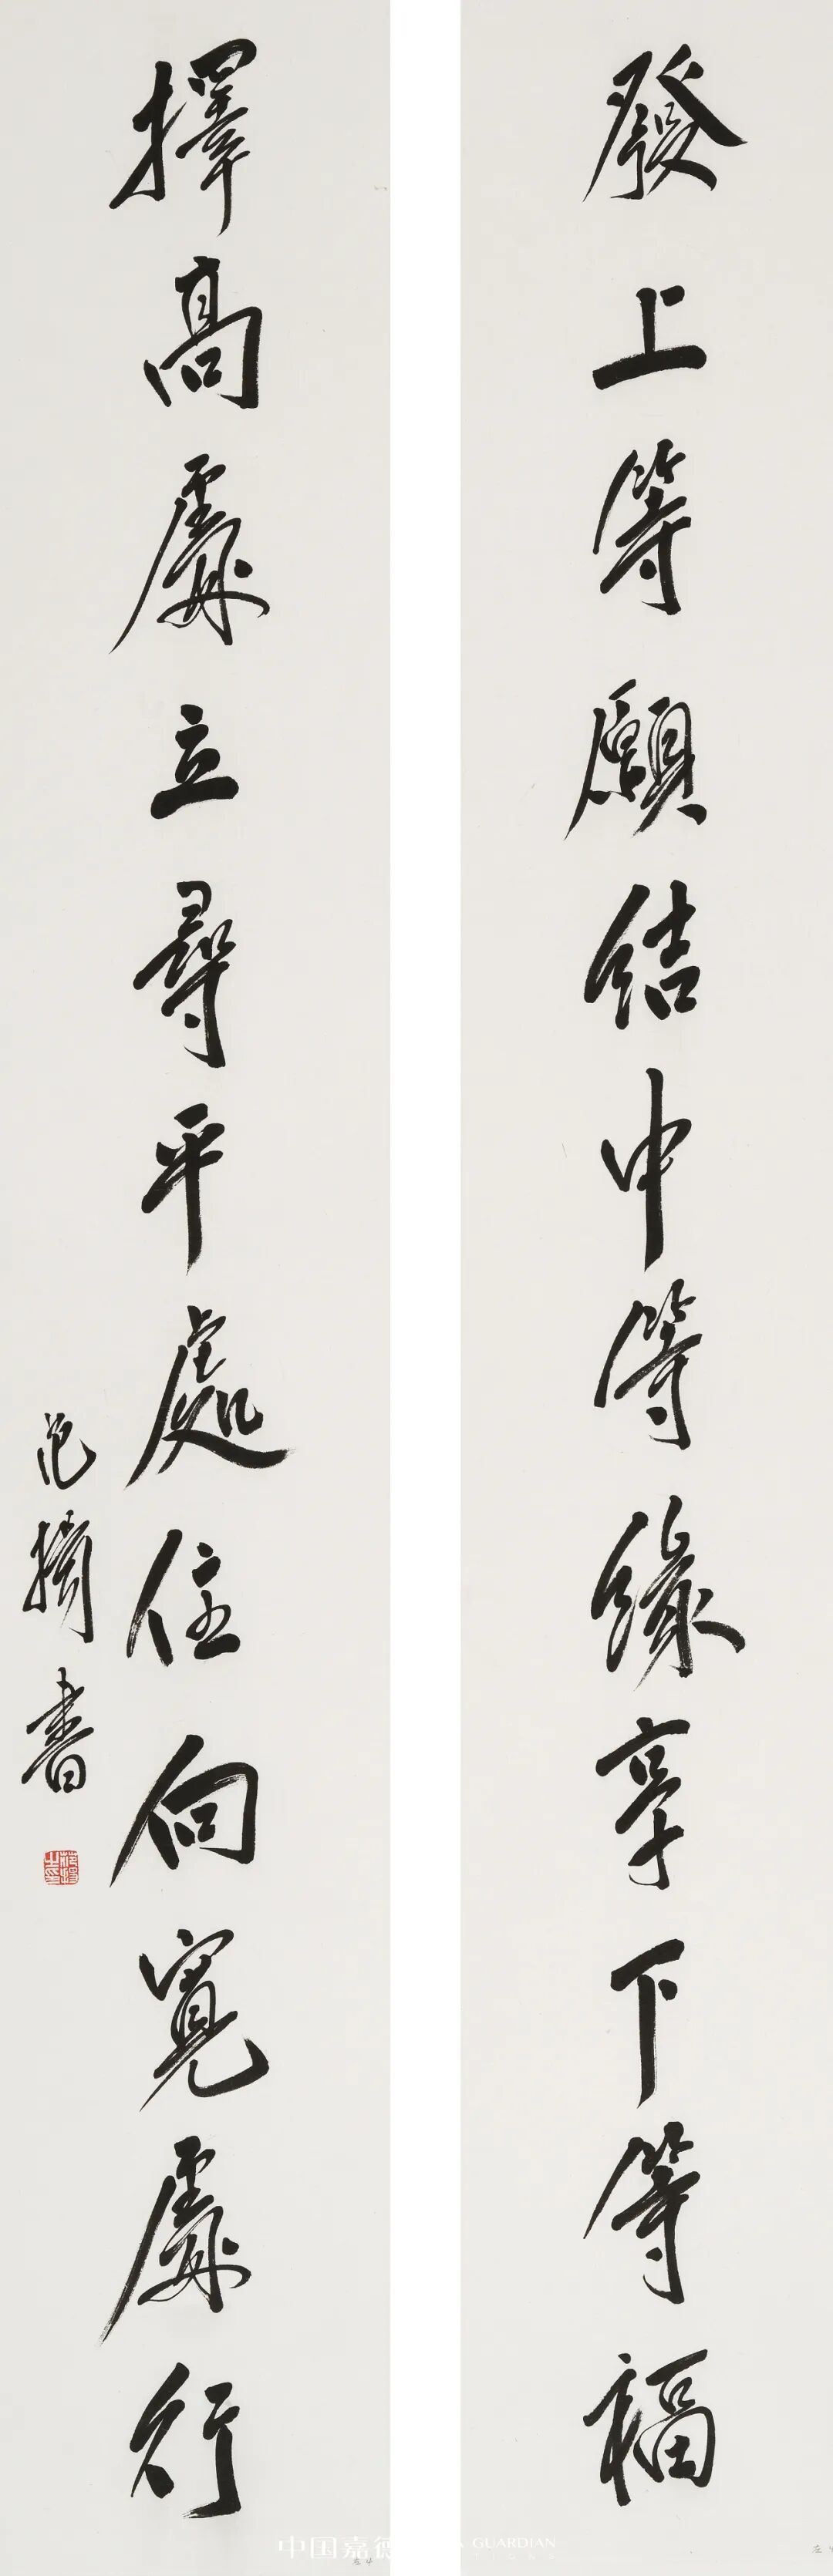 發上等願結中等緣享下等福
擇高處立尋平處住向寬處行
范擣書
中国嘉德
GUARDIAN